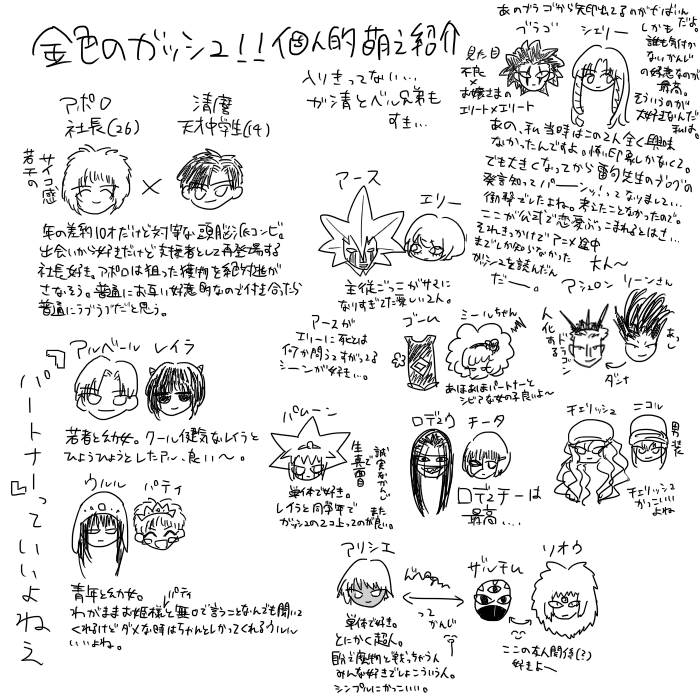 金色のガッシュ!!個人的萌え紹介
入りきってない…
が清とベル兄弟も
すき…
あのブラゴから矢印出てるのがやばいん
だよ。
しかも
誰も気付か
ないかんじ
の好意なのが
最高。
そういうのが
大好きなんだ
私は。
ブラゴ
シェリー
見た目
不良
×
お嬢さまの
エリート×エリート
あの、私当時はこの2人全く興味
なかったんですよ。怖い印象しかなくて。
でも大きくなってから雷句先生のブログの
発言知ってパーーンッ!ってなりまして…
衝撃でしたよね。考えたことなかったので。
ここが公式で恋愛ぶっこまれるとはさ…
それきっかけでアニメ途中
までしか知らなかった
ガッシュを読んだん
だー。
アポロ
社長(26)
清麿
天才中学生(14)
若干の
サイコ感
×
年の差約10才だけど対等な頭脳派コンビ。
出会いから好きだけど支援者として再登場する
社長好き。アポロは狙った獲物を絶対逃が
さなそう。普通にお互い好意的なので付き合ったら
普通にラブラブだと思う。
アース
エリー
主従ごっこがサマに
なりすぎてた楽しい2人。
アースが
エリーに死とは
何か問うてすがってる
シーンが好き…。
大人〜
アシュロン
リーンさん
人化する
ドラゴン
ダンナ
ゴーム
ミールちゃん
あほあほパートナーと
シビアな女の子良いよ〜
「パートナーっていいよねえ」
アルベール
レイラ
若者と幼女。クール健気なレイラと
ひょうひょうとしたアル、良い〜。
パムーン
誠実なかんじ
生真面目で
単体で好き。
レイラと同学年で
ガッシュの2コ上ってのがまた良い。
ロデュウ
チータ
ロデュチーは
最高….
チェリッシュ
ニコル
男装
チェリッシュ
がっこいい
よね
ウルル
パティ
青年と幼女。
パティ
わがままお姫様と無口で言うことなんでも聞いて
くれるけどダメな時はちゃんとしかってくれるウルル
いいよね。
アリシエ
単体で好き。
とにかく超人。
自分で魔物と戦っちゃう人
みんな好きでしょこういう人。
シンプルにかっこいい。
って
かんじ
ザルチム
リオウ
ここの友人関係(?)
好きよ〜